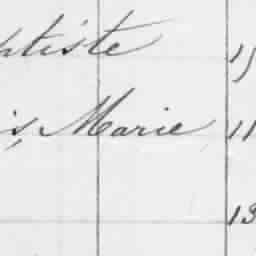 ptiste 15
is, Marie 11
13